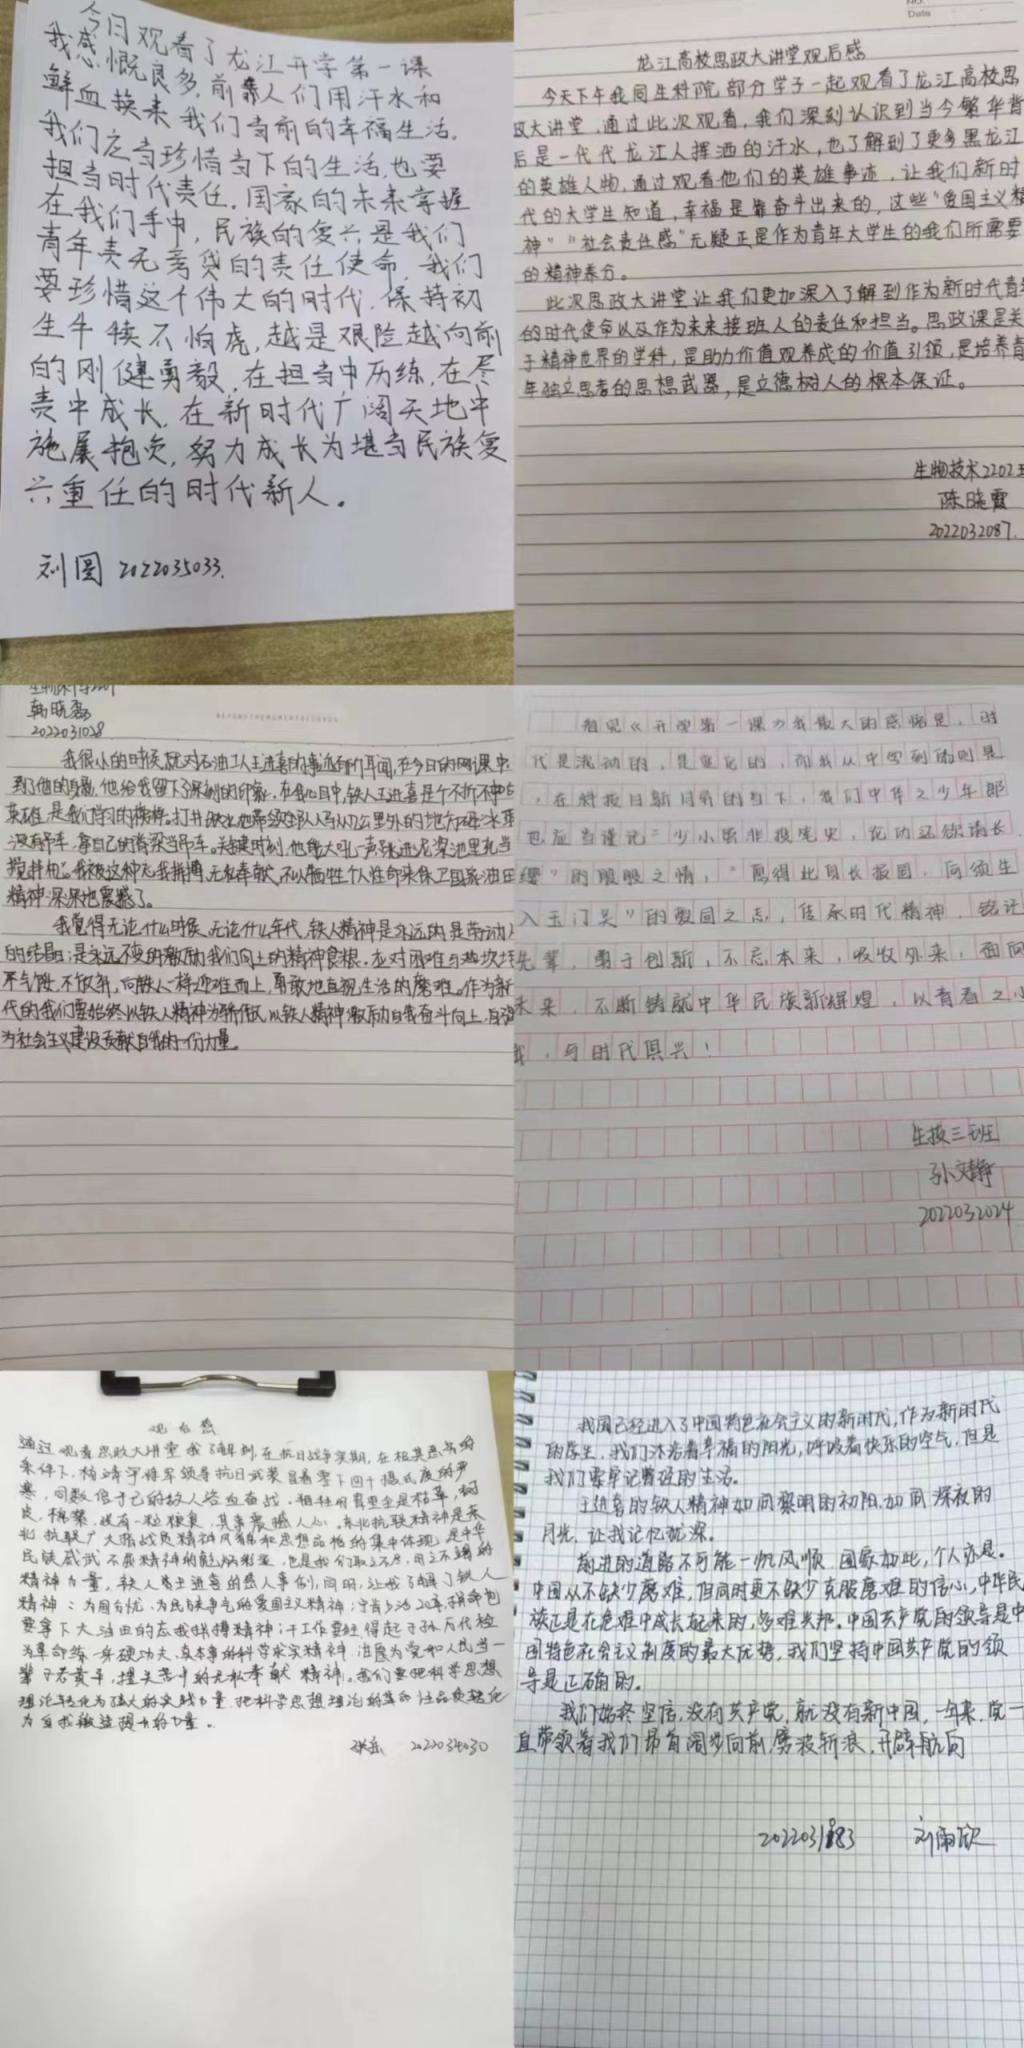 今日观看了龙江开学第一课
我感慨良多,前辈人们用汗水和
鲜血换来我们当前的幸福生活.
我们应当珍惜当下的生活,也要
担当时代责任.国家的未来掌握
在我们手中,民族的复兴是我们
青年责无旁贷的责任使命.我们
要珍惜这个伟大的时代,保持初
生牛犊不怕虎,越是艰险越向前
的刚健勇毅,在担当中历练,在尽
责中成长,在新时代广阔天地中
施展抱负,努力成长为堪当民族复
兴重任的时代新人。
刘圆 2022035033.
Date
龙江高校思政大讲堂观后感
今天下午我同生科院部分学子一起观看了龙江高校思
政大讲堂,通过此次观看,我们深刻认识到当今繁华背
后是一代代龙江人挥洒的汗水,也了解到了更多黑龙江
的英雄人物,通过观看他们的英雄事迹,让我们新时
代的大学生知道,幸福是靠奋斗出来的,这些“爱国主义精
神”“社会责任感”无疑正是作为青年大学生的我们所需要
的精神养分。
此次思政大讲堂让我们更加深入了解到作为新时代青年
的时代使命以及作为未来接班人的责任和担当。思政课是关
于精神世界的学科,是助力价值观养成的价值引领,是培养青
年独立思考的思想武器,是立德树人的根本保证。
生物技术2202班
陈晓霞
2022032087.
韩晓磊
2022031028
BEYOND THE MOMENT RECORDS
我很小的时候,就对石油工人王进喜的事迹有所耳闻,在今日的网课中
到了他的身影,他给我留下了深刻的印象。在我心目中,铁人王进喜是个不折不扣的
英雄,是我们学习的榜样。打井缺水他带领全队人马从几公里外的地方
没有吊车,拿自己的脊梁当吊车。关键时刻,他能大吼一声跳进泥浆池里充当
搅拌机。我被这种忘我拼搏、无私奉献、不以牺牲个人性命来保卫国家油田
精神深深地震撼了。
我觉得无论什么时候,无论什么年代,铁人精神是永远的,是劳动人
的结晶,是永远不变的激励我们向上的精神食粮。应对困难与坎坷
不气馁,不放弃,向铁人一样迎难而上,勇敢地直视生活的磨难。作为新
代的我们要始终以铁人精神为骄傲,以铁人精神激励自我奋斗向上,
为社会主义建设贡献自我的一份力量。
看见《开学第一课》我最大的感悟是,时
代是流动的,是变化的,而我从中学到的则是
,在科技日新月异的当下,我们中华之少年郎
也应当谨记“少小虽非投笔吏,论功还欲请长
缨”的殷殷之情,“愿得此身长报国,何须生
入玉门关”的爱国之志,传承时代精神,铭记
先辈,勇于创新,不忘本来,吸收外来,面向
未来,不断铸就中华民族新辉煌,以青春之小
我,与时代俱兴!
生技三班
孙文静
2022032024
观后感
通过观看思政大讲堂我了解到,在抗日战争实期,在极其恶劣的
条件下,杨靖宇将军领导抗日武装冒着零下四十摄氏度的严
寒,同数倍于己的敌人浴血奋战,牺牲时胃里全是枯草,树
皮,棉絮,没有一粒粮食,其事震撼人心。东北抗联精神是东
北抗联广大指战员精神风貌和思想品格的集中体现,是中华
民族威武不屈精神的 也是我们取之不尽,用之不竭的
精神力量,铁人王进喜的感人事例,同时,让我了解了铁人
精神:为国分忧、为民族争气的爱国主义精神;宁肯少活20年,拼命也
要拿下大油田的忘我拼搏精神;干工作要经得起子孙万代检
为革命练一身硬功夫、真本事的科学求实精神,甘愿为党和人民当一
辈子老黄牛,埋头苦干的无私奉献精神。我们要把科学思想
理论转化为强大的实践力量,把科学思想理论的
为
张岳 2022034030
我国已经进入了中国特色社会主义的新时代,作为新时代
的学生,我们沐浴着幸福的阳光,呼吸着快乐的空气,但是
我们要牢记曾经的生活。
王进喜的铁人精神如同黎明的初阳,如同深夜的
月光,让我记忆犹深。
前进的道路不可能一帆风顺,国家如此,个人亦是。
中国从不缺少磨难,但同时更不缺少克服磨难的信心,中华民
族正是在危难中成长起来的,多难兴邦。中国共产党的领导是中
国特色社会主义制度的最大优势,我们坚持中国共产党的领
导是正确的。
我们始终坚信,没有共产党,就没有新中国,一年来,党一
直带领着我们昂首阔步向前,劈波斩浪,开辟航向
刘雨欣